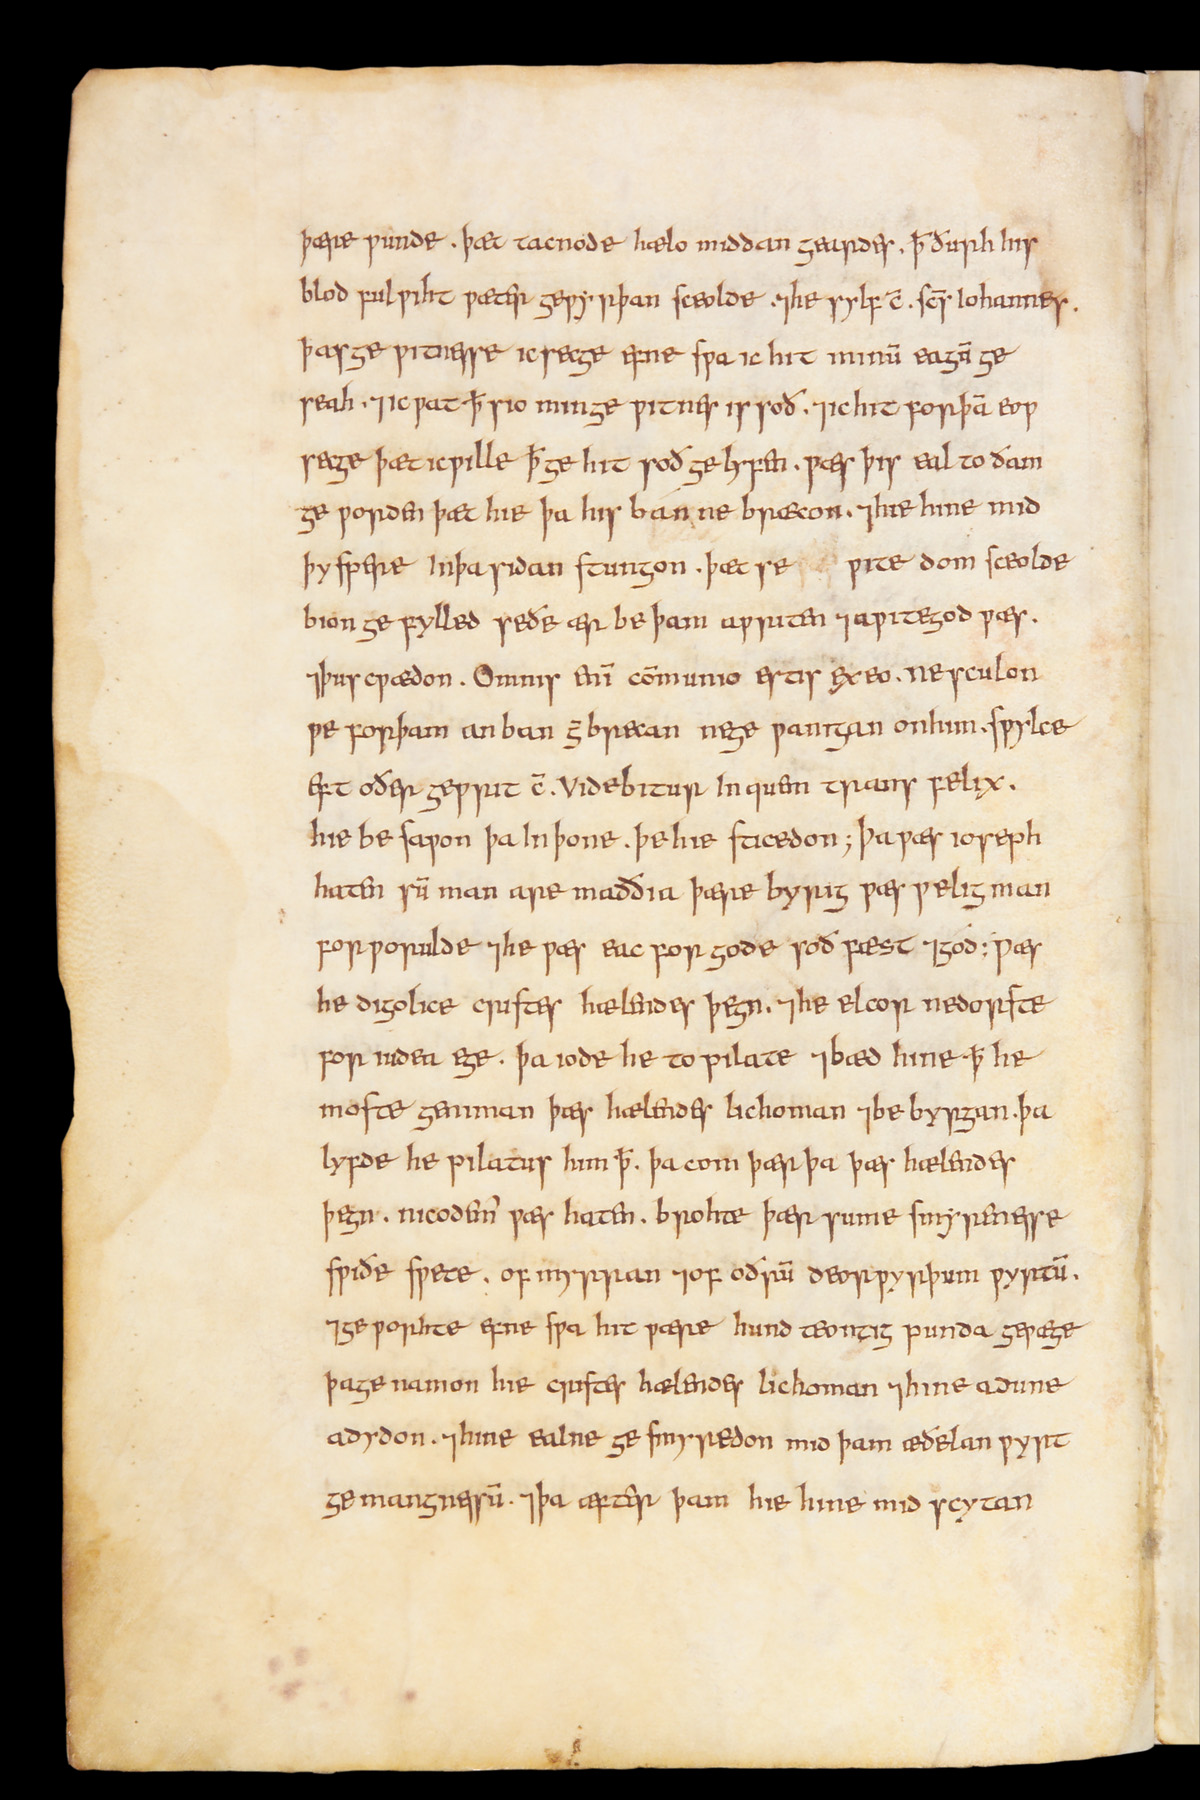 þære ƿunde . þæt tacnode hælo middan geardes . ꝥ ðurh his
blod fulƿiht ƿæter geƿyrþan sceolde . ⁊he sylf c̄ . sc̄s Iohannes .
þas ge ƿitnesse ic secge efne sƿa ic hit minū eagū ge
seah . ⁊ic ƿat ꝥ sio minge ƿitnes is soð . ⁊ic hit forþā eoƿ
secge þæt ic ƿille ꝥ ge hit soð gelyfen . ƿæs þis eal to ðam
ge ƿorden þæt hie þa his ban ne bræcon . ⁊hie hine mid
þy spere In þa sidan stungon . þæt se ƿite dom sceolde
bion ge fylled se ðe ær be þam aƿriten ⁊aƿitegod ƿæs .
⁊þus cƿædon . Omnis enī cōmunio estis ex eo . ne sculon
ƿe forþam an ban ḡbrecan ne ge ƿanigan on him . sƿylce
eft oðer geƿrit c̄ . Videbitur In quem trans felix .
hie be saƿon þa In þone . þe hie sticedon ; þa ƿæs ioseph
haten sū man are maððia þære byrig ƿæs ƿelig man
for ƿorulde ⁊he ƿæs eac for gode soð fæst ⁊god ; ƿæs
he digolice cristes hælendes þegn . ⁊he elcor ne dorste
for iudea ege . þa iode he to pilate ⁊bæd hine ꝥ he
moste geniman þæs hælendes lichoman ⁊be byrgan . þa
lyfde he pilatus him ꝥ . þa com þær þa þæs hælendes
þegn . nicodem̄ ƿæs haten . brohte þær sume smyrenesse
sƿiðe sƿete . of myrran ⁊of oðrū deorƿyrþum ƿyrtū .
⁊ge ƿorhte efne sƿa hit ƿære hund teontig punda geƿæge
þa ge namon hie cristes hælendes lichoman ⁊hine adune
adydon . ⁊hine ealne ge smyredon mid þam æðelan ƿyrt
ge mangnessū . ⁊þa æfter þam hie hine mid scytan